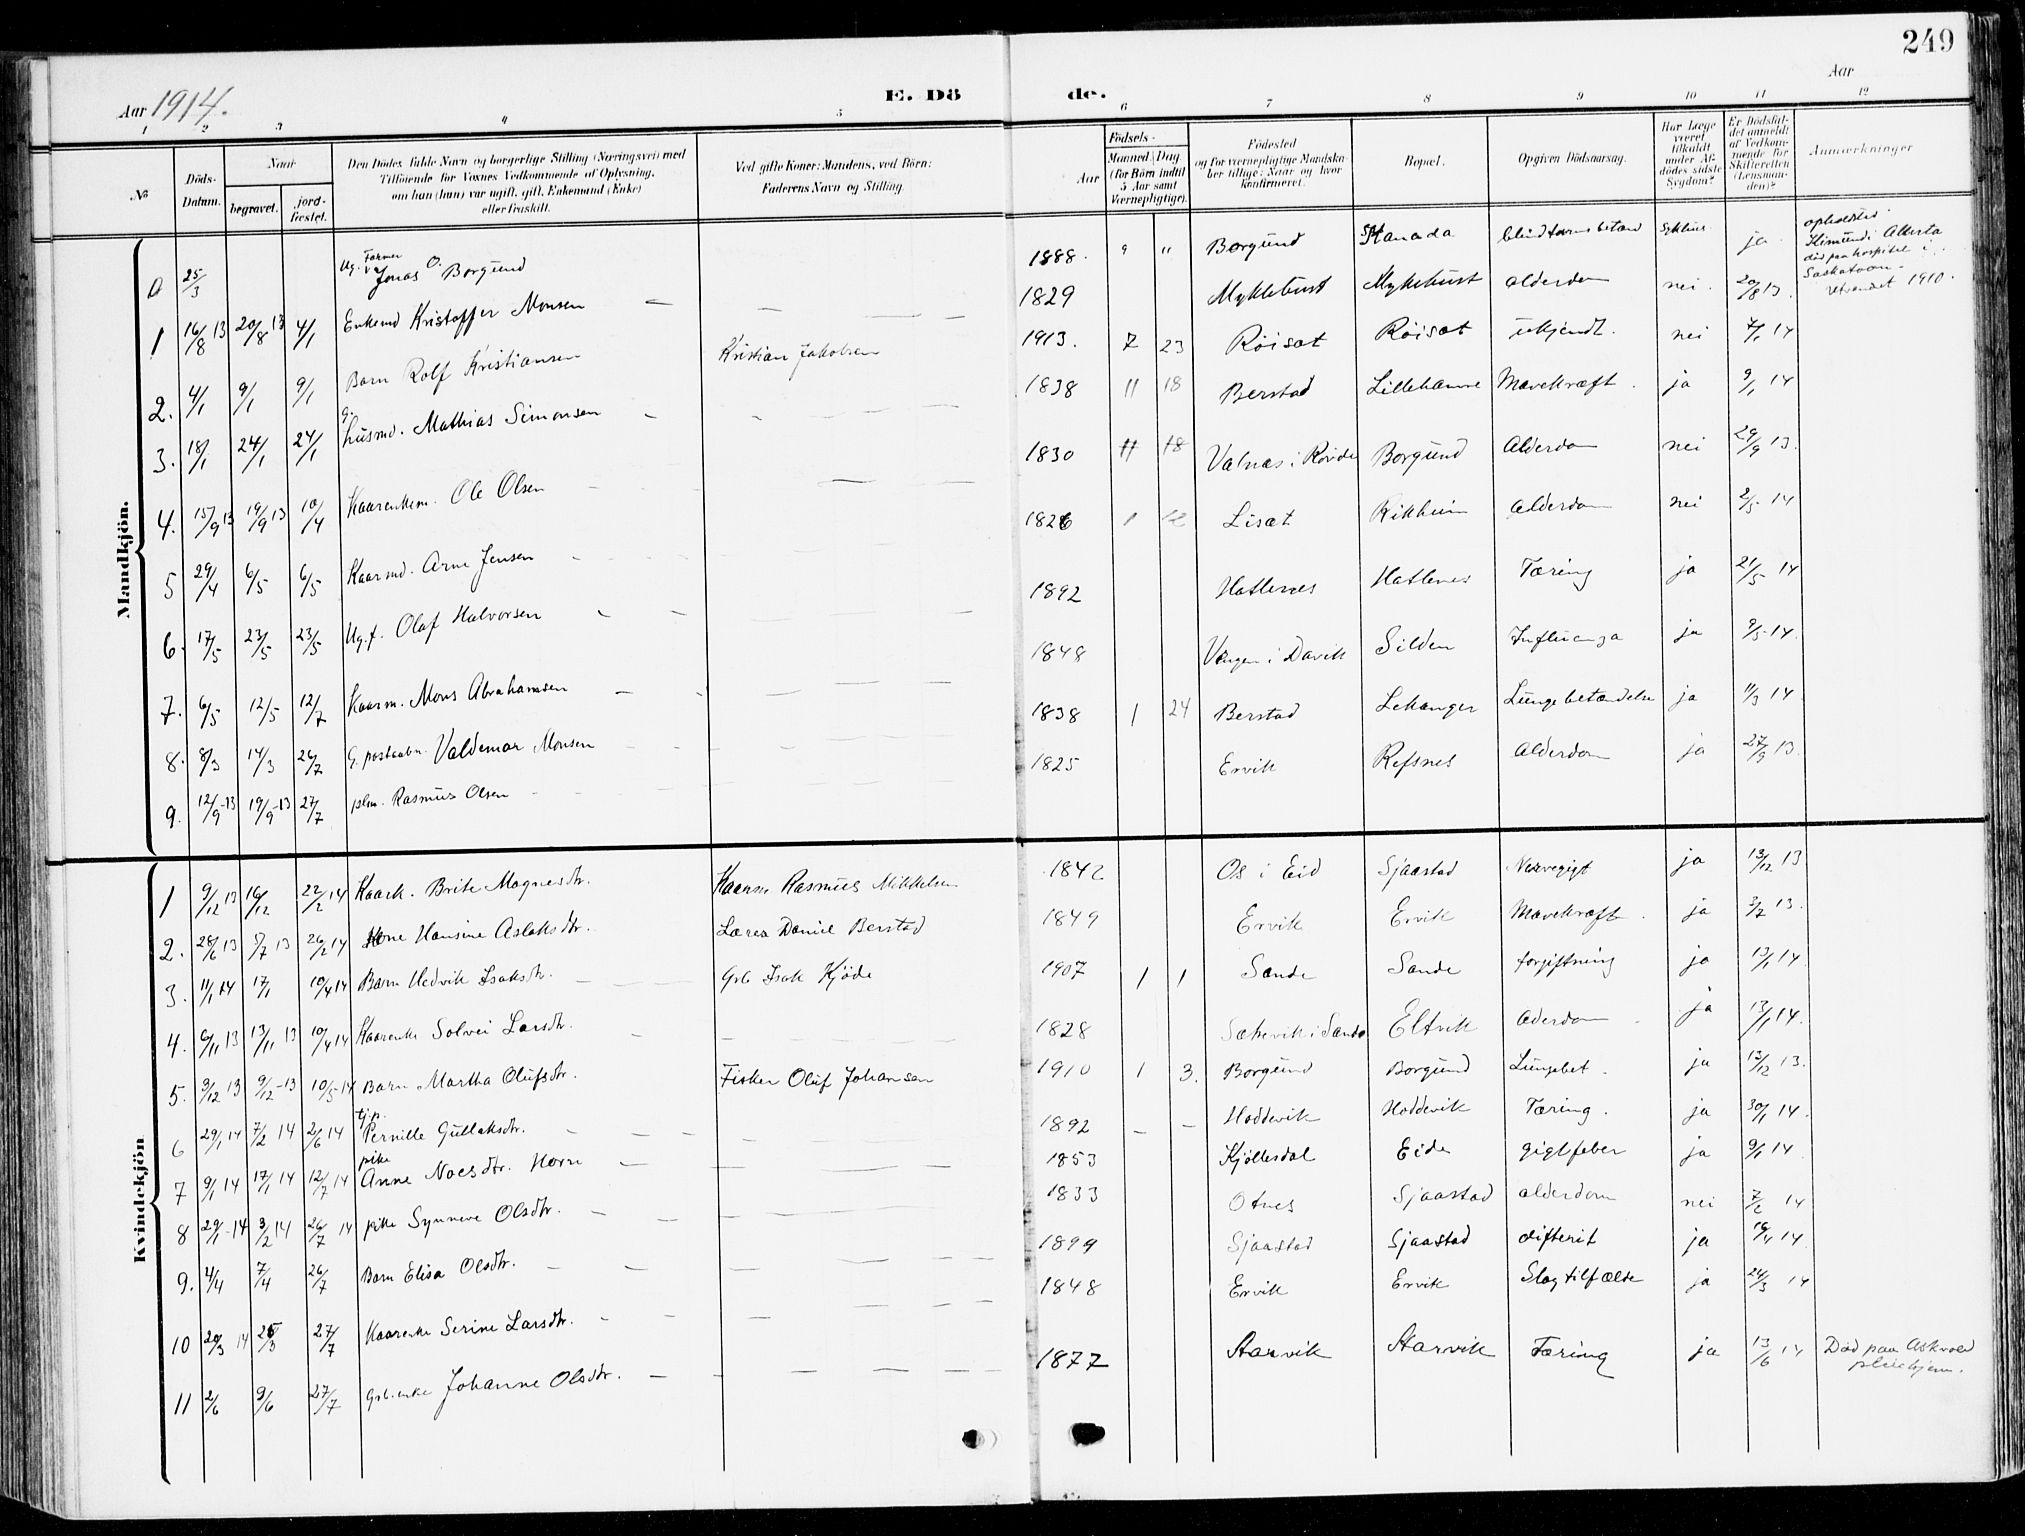 249
Aar 1914.
E. Dö de.
Aar
1 2 3 4 5 6 7 8 9 10 11 12
№
Döds-Datum.
Naar
begravet.
jord-fæstet.
Den Dödes fulde Navn og borgerlige Stilling (Næringsvei) med
Tilföiende for Voxnes Vedkommende af Oplysning,
om han (hun) var ugift, gift, Enkemand (Enke)
eller fraskilt.
Ved gifte Koner: Mandens, ved Börn:
Faderens Navn og Stilling.
Födsels-
Aar
Maaned Dag
(for Börn indtil
5 Aar samt
Værnepligtige).
Födested
og for værnepligtige Mandska-
ber tillige: Naar og hvor
konfirmeret.
Bopæl.
Opgiven Dödsaarsag.
Har Læge
været
tilkaldt
under Af-
dödes sidste
Sygdom?
Er Dödsfal-
det anmeldt
af Vedkom-
mende for
Skifteretten
(Lensman-
den)?
Anmærkninger
Mandkjön.
0 25/3 Ug. Farmer Jonas O. Borgund 1888 " " Borgund Kanada blindtarmsbetænd sykhus ja
opholdsted Alberta
död paa hospital i
Saskatoon
utvandret 1910.
1 16/8 13 20/8 13 4/1 Enkemd Kristoffer Monsen — — 1829 Myklebust Myklebust alderdom nei 20/8 13.
2. 4/1 9/1 9/1 Barn Rolf Kristiansen Kristian Jakobsen 1913. 7 23 Röisæt Röisæt ukjendt. nei 7/1 14
3. 18/1 24/1 24/1 G. husmd. Mathias Simonsen — — 1838 11 18 Berstad Lillehamre Mavekræft ja 9/1 14
4. 15/9 13 19/9 13 10/4 Kaarenkem. Ole Olsen — 1830 11 18 Valnæs i Rovde Borgund Alderdom nei 29/9 13.
5 29/4 6/5 6/5 Kaarmd. Arne Jensen — 1826 1 12 Lisæt Rikheim alderdom nei 2/5 14
6. 17/5 23/5 23/5 Ug. f. Olaf Halvorsen — 1892 Hatlenes Hatlenes Tæring ja 21/5 14
7. 6/5 12/5 12/7 Kaarm. Mons Abrahamsen — 1848 Vengen i Davik Silden Influenza ja 9/5 14.
8. 8/3 14/3 26/7 G. postaabn. Valdemar Monsen — 1838 1 24 Berstad Lekanger Lungebetændelse ja 11/3 14
9. 12/9-13 19/9-13 27/7 Rasmus Olsen — 1825 Ervik Refsnes alderdom ja 27/9 13.
Kvindekjön
1 9/12 13 16/12 22/2 14 Kaark. Brite Magnesdtr. Kaarm Rasmus Mikkelsen 1842 Os i Eid Sjaastad Nervegigt ja 13/12 13
2. 28/6 13 5/7 13 26/2 14 Hansine Aslaksdtr. Lærer Daniel Berstad 1849 Ervik Ervik Mavekræft. ja 3/7 13.
3. 11/1 14 17/1 10/4 14 Barn Hedvik Isaksdtr. Grb Isak Kjöde 1907 1 1 Sande Sande forgiftning ja 13/1 14
4. 6/11 13 13/11 13 10/4 14 Kaarenke Solvei Larsdtr. — 1828 Sætrevik i Sande Eltvik Alderdom ja 13/1 14.
5. 3/12 13 9/12-13 10/5-14 Barn Martha Olufsdtr. Fisker Oluf Johansen 1910 1 3. Borgund Borgund Lungebet. ja 13/12 13.
6 29/1 14 7/2 14 2/6 14 tj.p. Pernille Gullaksdtr. — 1892 — — Hoddevik Hoddevik Tæring. ja 30/1 14.
7 9/1 14 17/1 14 12/7 14 pike Anne Noesdtr. — 1853 Kjöllesdal Eide gigtfeber ja 9/1 14
8 29/1-14 3/2 14 26/7 14 pike Synneve Olsdtr. — 1833 Otnes Sjaastad alderdom nei 7/2 14
9. 4/4 7/4 26/7 Barn Elisa Olsdtr. — 1899 Sjaastad Sjaastad difterit ja 14
10 20/3 14 25/3 27/7 Kaarenke Serine Larsdtr. — 1848 Ervik Ervik Slagtilfælde ja 24/3 14
11 2/6 9/6 27/7 Grb.enke Johanne Olsdtr. — 1877 Aarvik Aarvik Tæring ja 13/6 14 Död paa Askvold
pleiehjem.